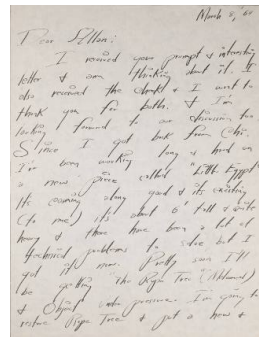 March 8, 60
Dear Ellen:
I received your prompt & interesting
letter & am thinking about it. I
also received the check & I want to
thank you for both. & I'm
looking forward to our discussion too
Since I got back from Chi.
I'm been working long & hard on
a new piece called "Little Egypt"
It's coming along good & it's exciting
(to me) it's about 6' tall & quite
heavy & there have been a lot of
technical problems to solve but I
got it now. Pretty soon I'll
be getting "the Pipe Tree"
& Object under pressure. I'm going to
restore Pipe Tree & put a new